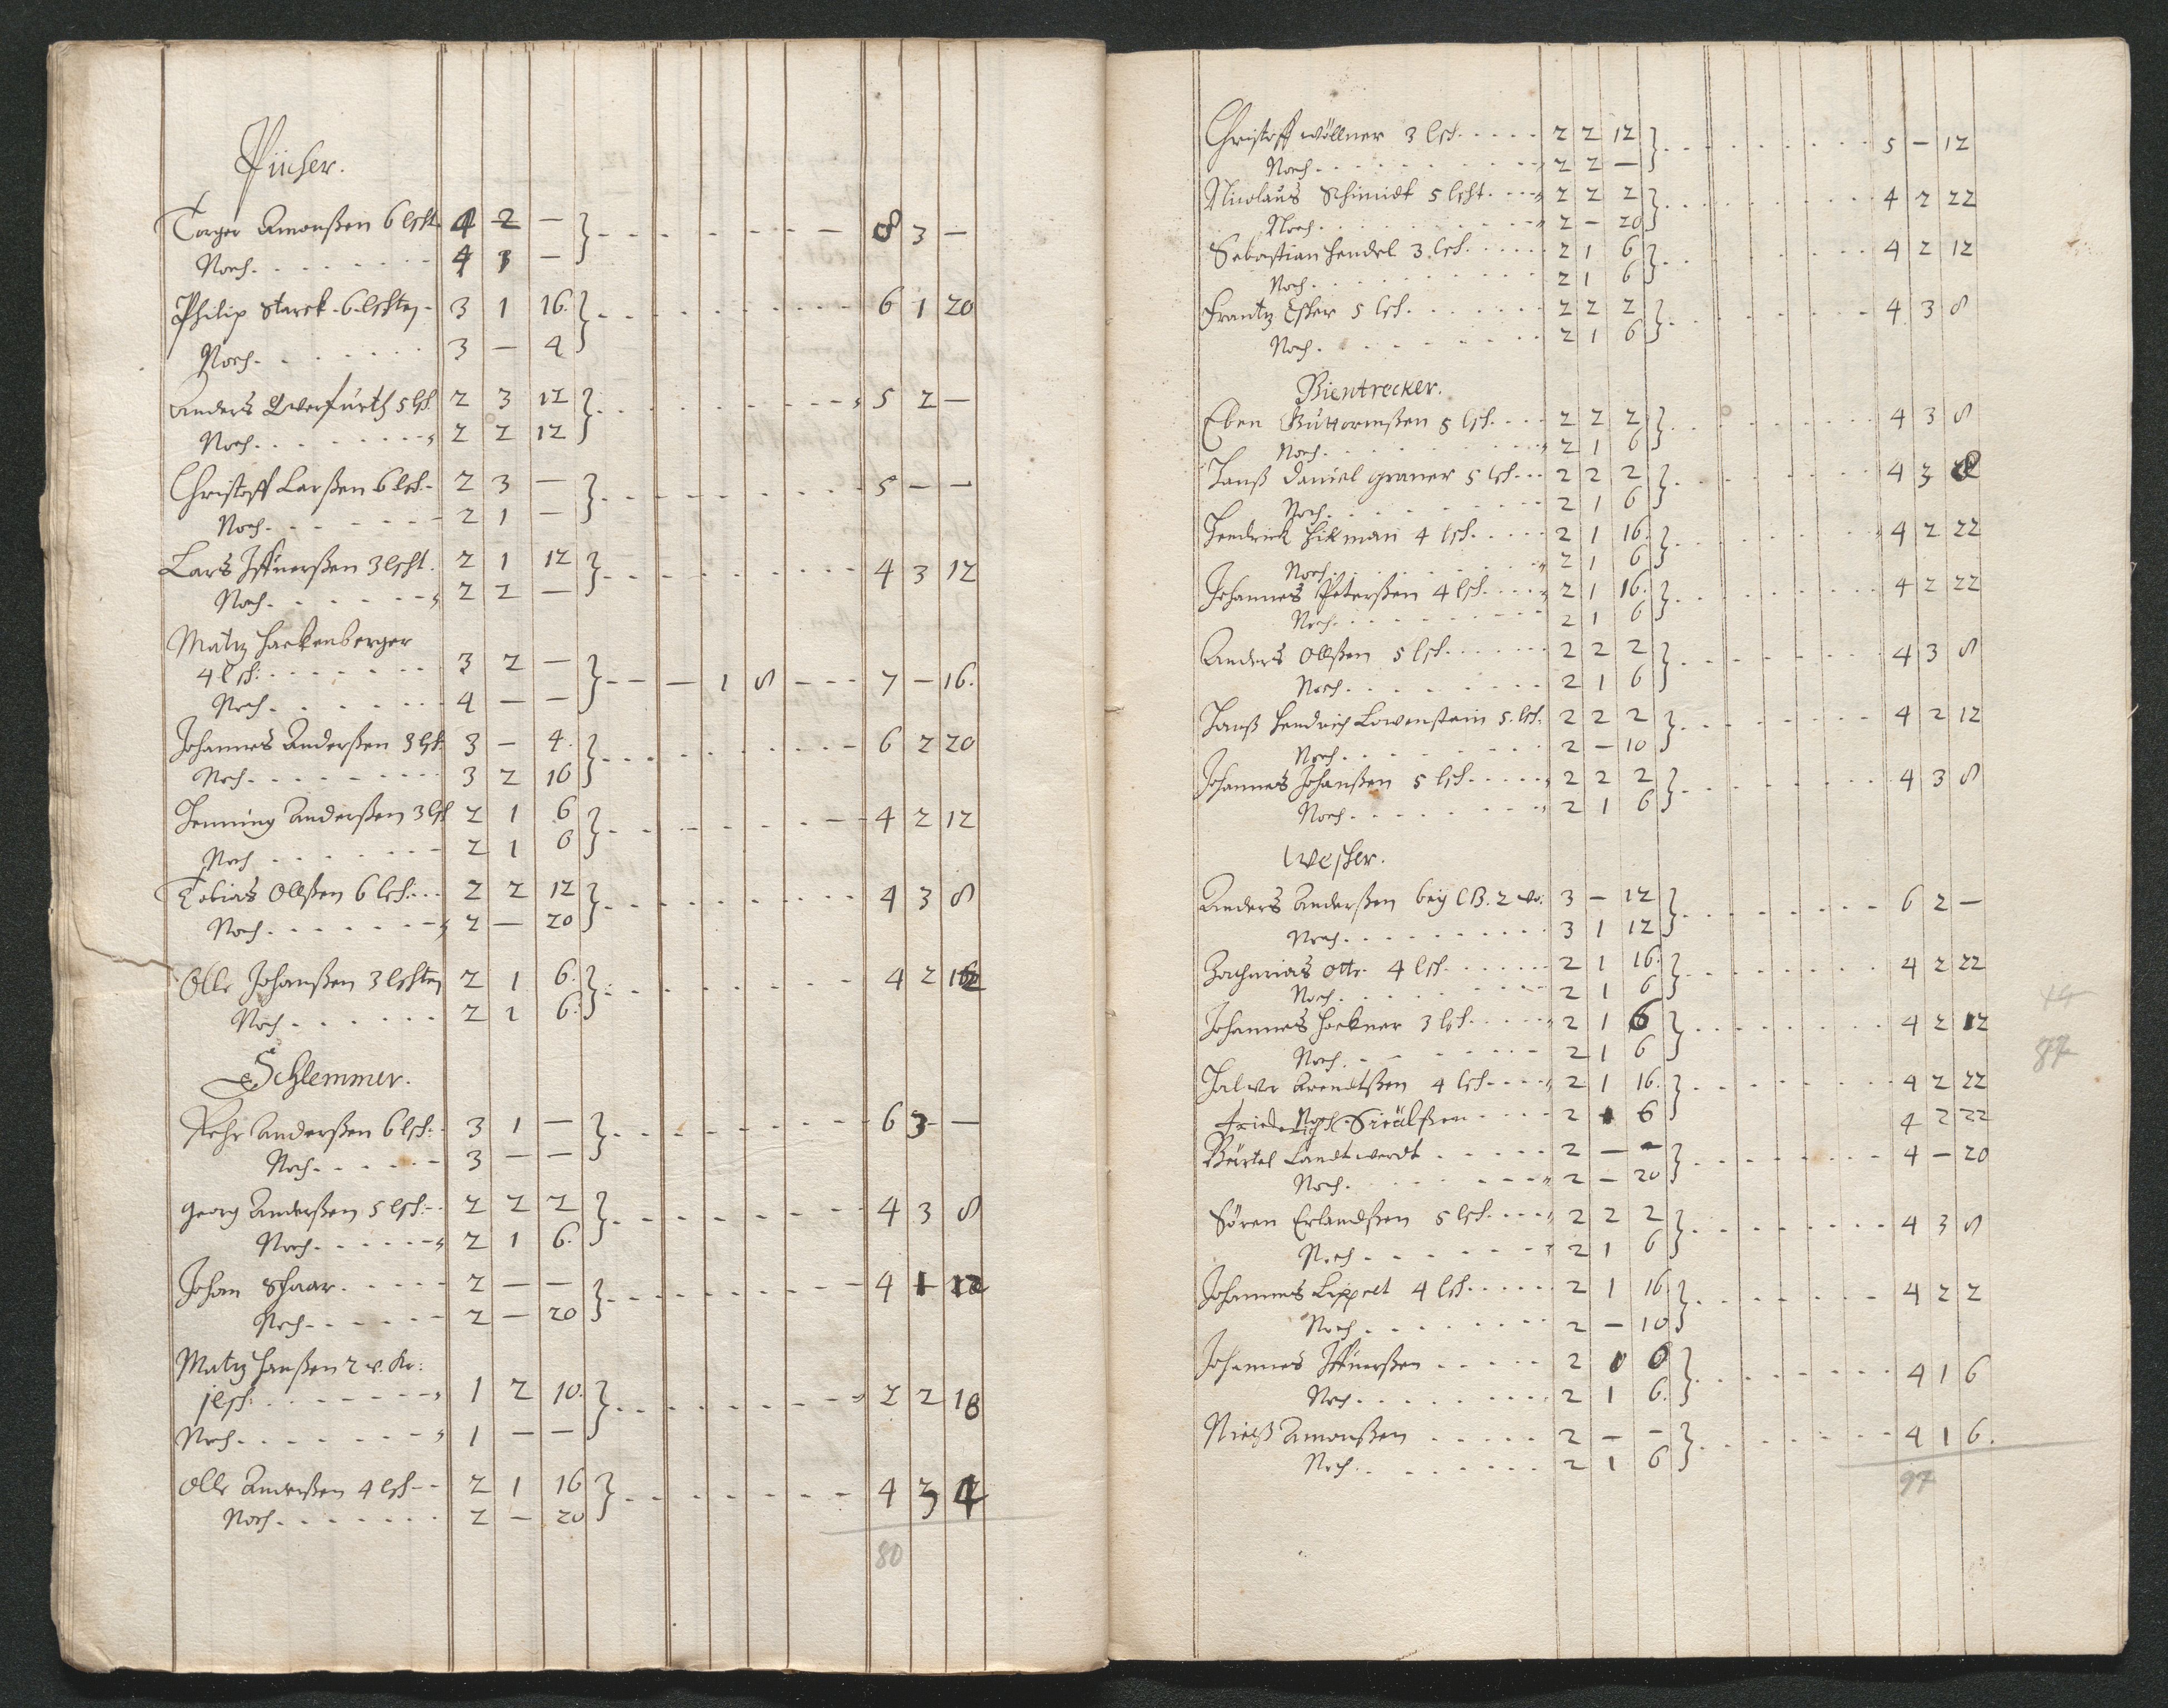 Pücher.
Torger Amonßen 6 lcht. 4 2 — } 8 3 —
Noch. 4 1 —
Philip Starck. 6. lchten 3 1 16. } 6 1 20
Noch. 3 — 4
Anders Querfurth 5 lch. 2 3 12 } 5 2 —
Noch. 2 2 12
Christoff Larßen 6 lch. 2 3 — } 5 — —
Noch. 2 1 —
Lars Iffuerßen 3 lcht. 2 1 12 } 4 3 12
Noch. 2 2 —
Matz Hackenberger
4 lch: 3 2 — } — 1 8 7 — 16.
Noch. 4 — —
Johannes Anderßen 3 lch. 3 — 4. } 6 2 20
Noch. 3 2 16
Henning Anderßen 3 lch 2 1 6 } 4 2 12
Noch 2 1 6
Tobias Ollßen 6 lch. 2 2 12 } 4 3 8
Noch. 2 — 20
Olle Johanßen 3 lchten 2 1 6. } 4 2 12
Noch. 2 1 6.
Schlemmer.
Pehr Anderßen 6 lch. 3 1 — } 6 3 —
Noch. 3 — —
Georg Anderßen 5 lch. 2 2 2 } 4 3 8
Noch. 2 1 6.
Johan Schaar. 2 — — } 4 1 12
Noch. 2 — 20
Matz Hanßen 2 w. Kr:
1 lch: 1 2 10. } 2 2 18
Noch. 1 — —
Olle Anderßen 4 lch 2 1 16 } 4 3 4
Noch. 2 — 20
80
Christoff Wöllner 3 lch. 2 2 12 } 5 — 12
Noch. 2 2 —
Nicolaus Schmidt 5 lcht. 2 2 2 } 4 2 22
Noch. 2 — 20
Sebastian Hendel 3 lch. 2 1 6 } 4 2 12
Noch. 2 1 6
Frantz Esker 5 lch. 2 2 2 } 4 3 8
Noch. 2 1 6
Bientrecker.
Eben Guttormßen 5 lch. 2 2 2 } 4 3 8
Noch. 2 1 6
Hanß Daniel Graner 5 lch. 2 2 2 } 4 3 8
Noch. 2 1 6
Hendrick Hikman 4 lch. 2 1 16. } 4 2 22
Noch. 2 1 6
Johannes Peterßen 4 lch. 2 1 16. } 4 2 22
Noch. 2 1 6
Anders Ollßen 5 lch. 2 2 2 } 4 3 8
Noch. 2 1 6
Hanß Hendrich Lowenstein 5. lch. 2 2 2 } 4 2 12
Noch. 2 — 10
Johannes Johanßen 5 lch. 2 2 2 } 4 3 8
Noch. 2 1 6
Wescher.
Anders Anderßen beÿ 2 w: 3 — 12 } 6 2 —
Noch. 3 1 12
Zacharias Otte. 4 lch. 2 1 16. } 4 2 22
Noch. 2 1 6
Johannes Hockner 3 lch. 2 1 6 } 4 2 12
Noch. 2 1 6
Halvor Arendtßen 4 lch. 2 1 16. } 4 2 22
Noch. 2 1 6
Friederich 4 2 22
Bärtel Landtwerdt 2 — — } 4 — 20
Noch. 2 — 20
Sören Erlandßen 5 lch. 2 2 2 } 4 3 8
Noch. 2 1 6
Johannes Lippelt 4 lch. 2 1 16. } 4 2 2
Noch 2 — 10
Johannes Iffuerßen 2 0 0 } 4 1 6
Noch. 2 1 6.
Nielß Amonßen 2 — — } 4 1 6.
Noch. 2 1 6
97
87